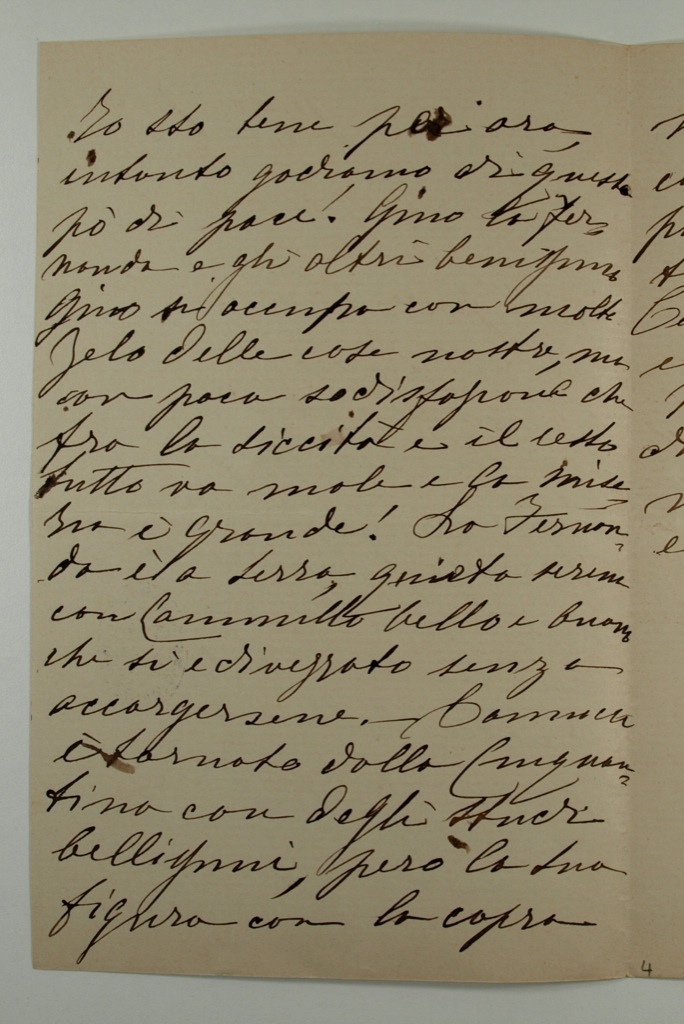 Io sto bene per ora,
intanto godiamo di questo
pò di pace! Gino la Fer-
nanda e gli altri benissimo
Gino si occupa con molto
zelo delle cose nostre, ma
con poca sodisfazione chè
fra la siccità e il resto
tutto va male e la mise-
ria è grande! La Fernan-
da è a terra, quieta serena
con Cammillo bello e buono
che si è divezzato senza
accorgersene. —
è tornato dalla Cinquan-
tina con degli studi
bellissimi, però la sua
figura con la capra
4